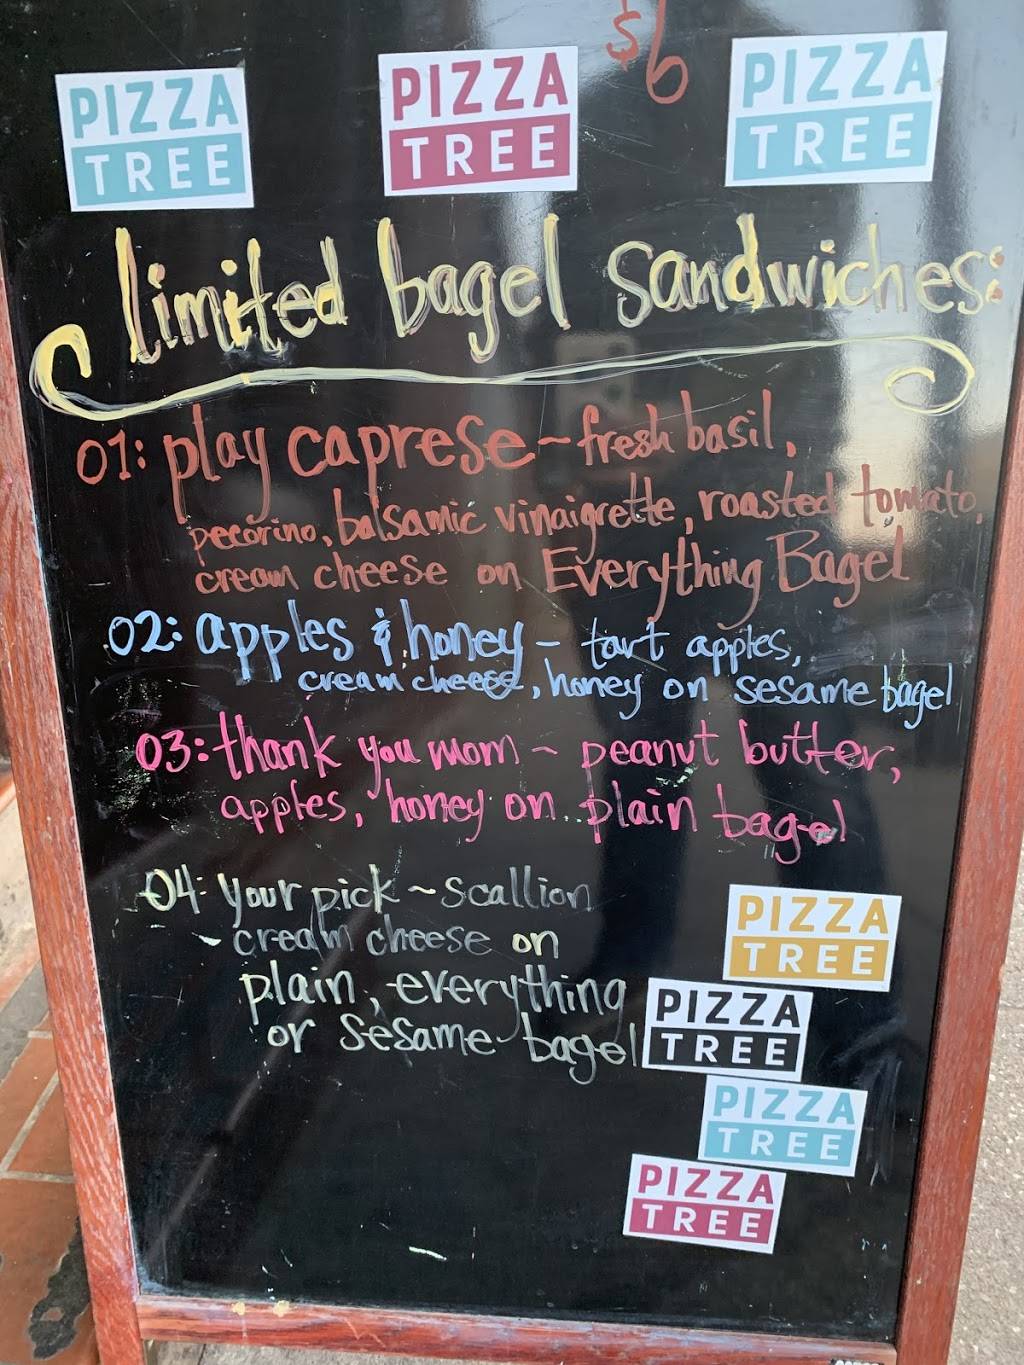 $6
PIZZA
TREE
PIZZA
TREE
PIZZA
TREE
limited bagel sandwiches:
01: play caprese ~ fresh basil,
pecorino, balsamic vinaigrette, roasted tomato,
cream cheese on Everything Bagel
02: apples & honey - tart apples,
cream cheese, honey on sesame bagel
03: thank you mom ~ peanut butter,
apples, honey on plain bagel
04: your pick ~ scallion
cream cheese on
plain, everything
or sesame bagel
PIZZA
TREE
PIZZA
TREE
PIZZA
TREE
PIZZA
TREE